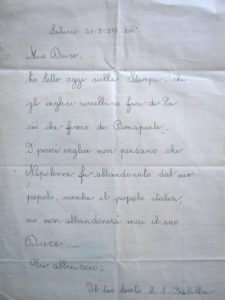 Mio Duce.
ho letto oggi sulla Stampa, che
gli inglesi vorrebbero fare di Te
ciò che fecero di Bonaparte.
I poveri inglesi non pensano che
Napoleone fu abbandonato dal suo
popolo, mentre il popolo italia,
no non abbandonerà mai il suo
Duce.
Il tuo devoto
Balilla